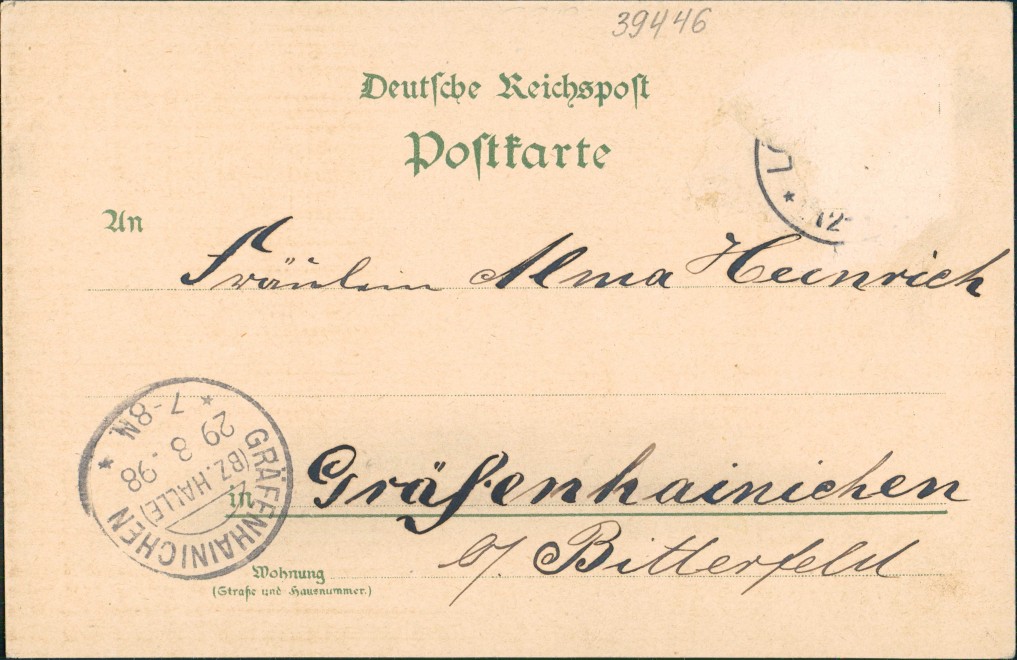 39446
Deutsche Reichspost
Postkarte
An
Fräulein Alma Heinrich
12
GRÄFENHAINICHEN
(BZ. HALLE)
29 8. 98
7-8N.
in Gräfenhainichen
b/ Bitterfeld
Wohnung
(Straße und Hausnummer.)